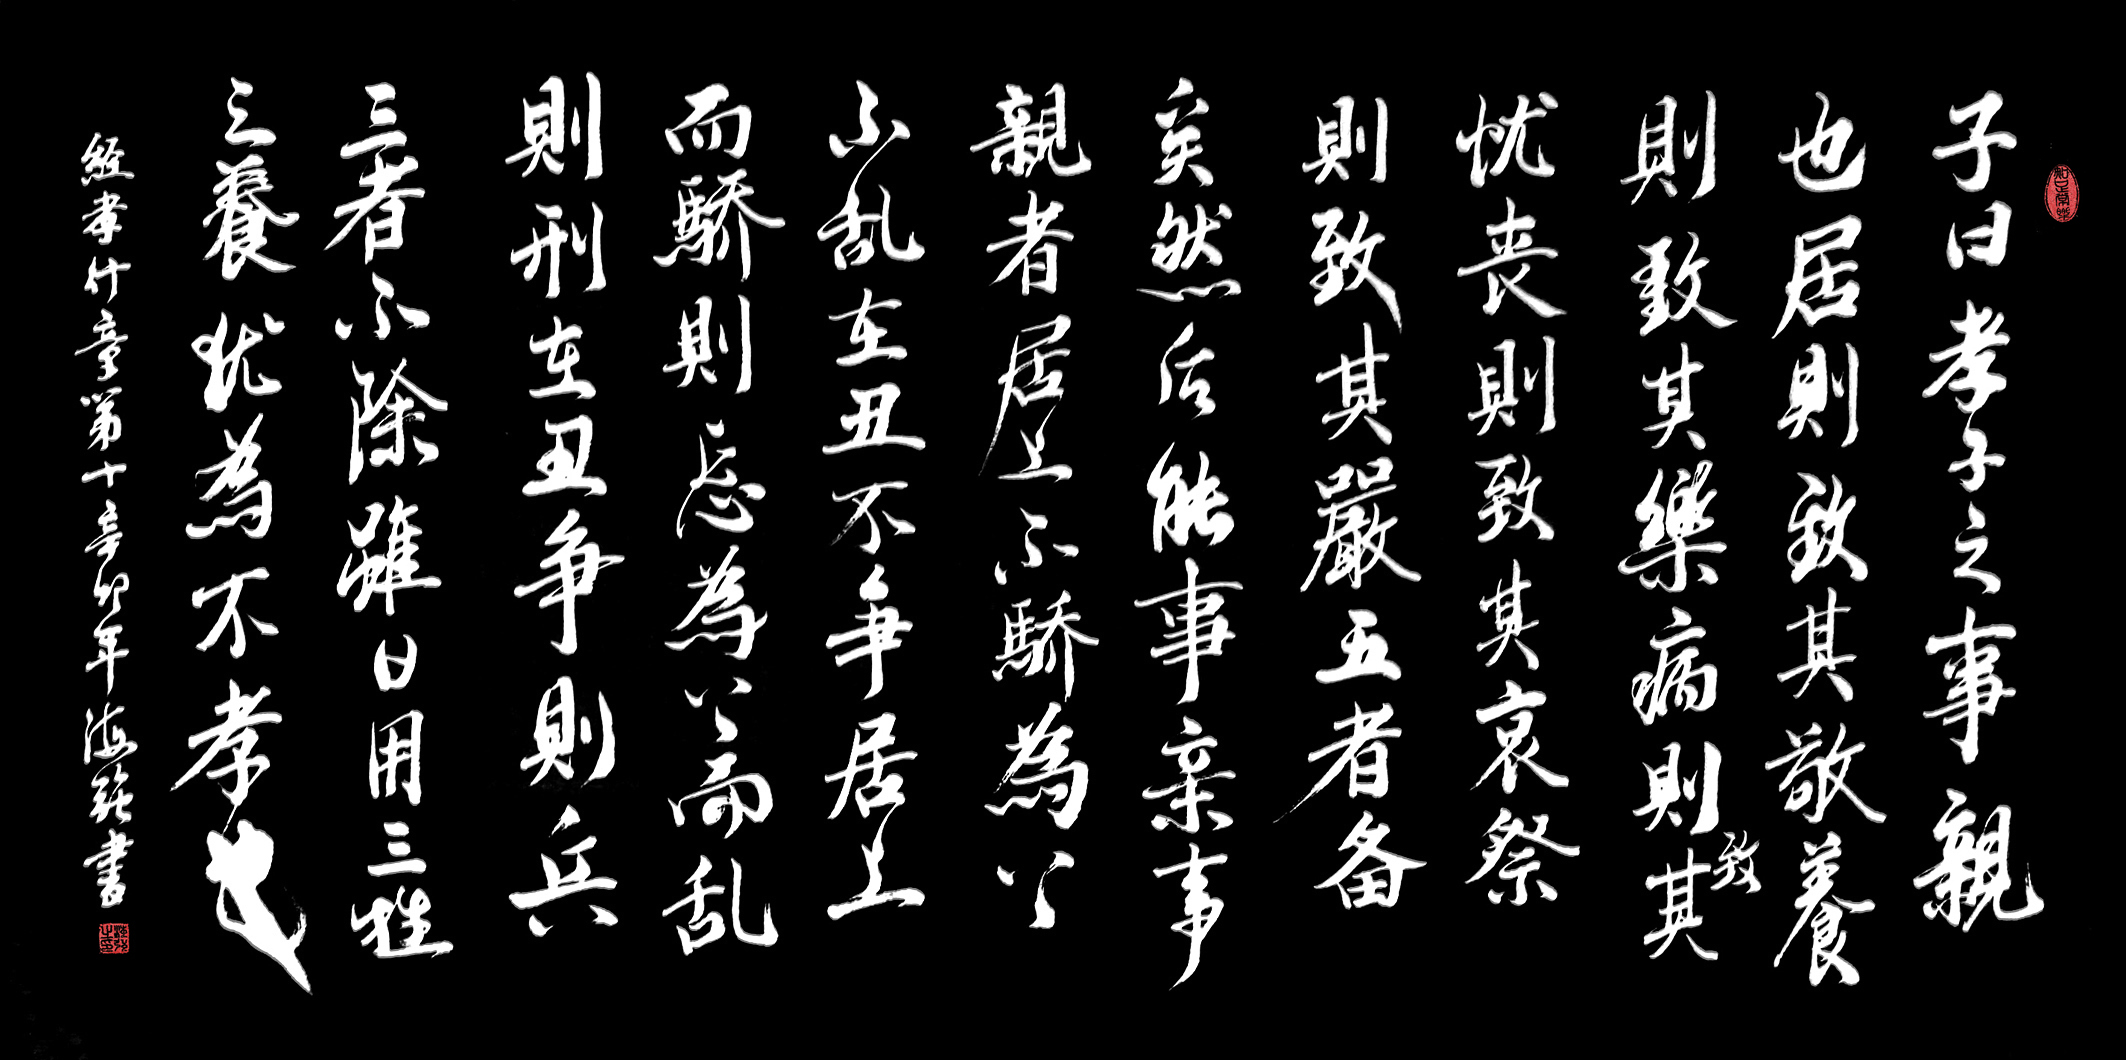 子曰孝子之事親
也居則致其敬養
則致其樂病則致其
忧丧則致其哀祭
則致其嚴五者备
矣然后能事亲事
親者居上不驕為下
不乱在丑不争居上
而驕則忘為下而乱
則刑在丑争則兵
三者不除雖日用三牲
之養犹為不孝也
經孝行章第十辛卯年海强書